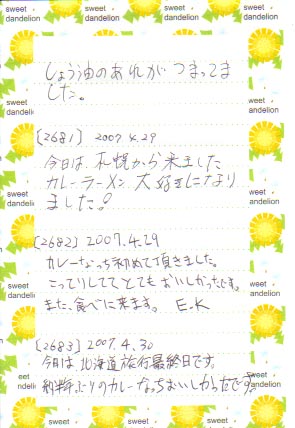 しょう油のあれがつまってま
した。
[2681] 2007.4.29
今日は、札幌から来ました
カレーラーメン大好きになり
ました!
[2682] 2007.4.29
カレーなっち初めて頂きました。
こってりしててとてもおいしかったです。
また、食べに来ます。 E.K
[2683] 2007.4.30
今日は北海道旅行最終日です。
カレーなっちおいしかったです。
sweet
dandelion